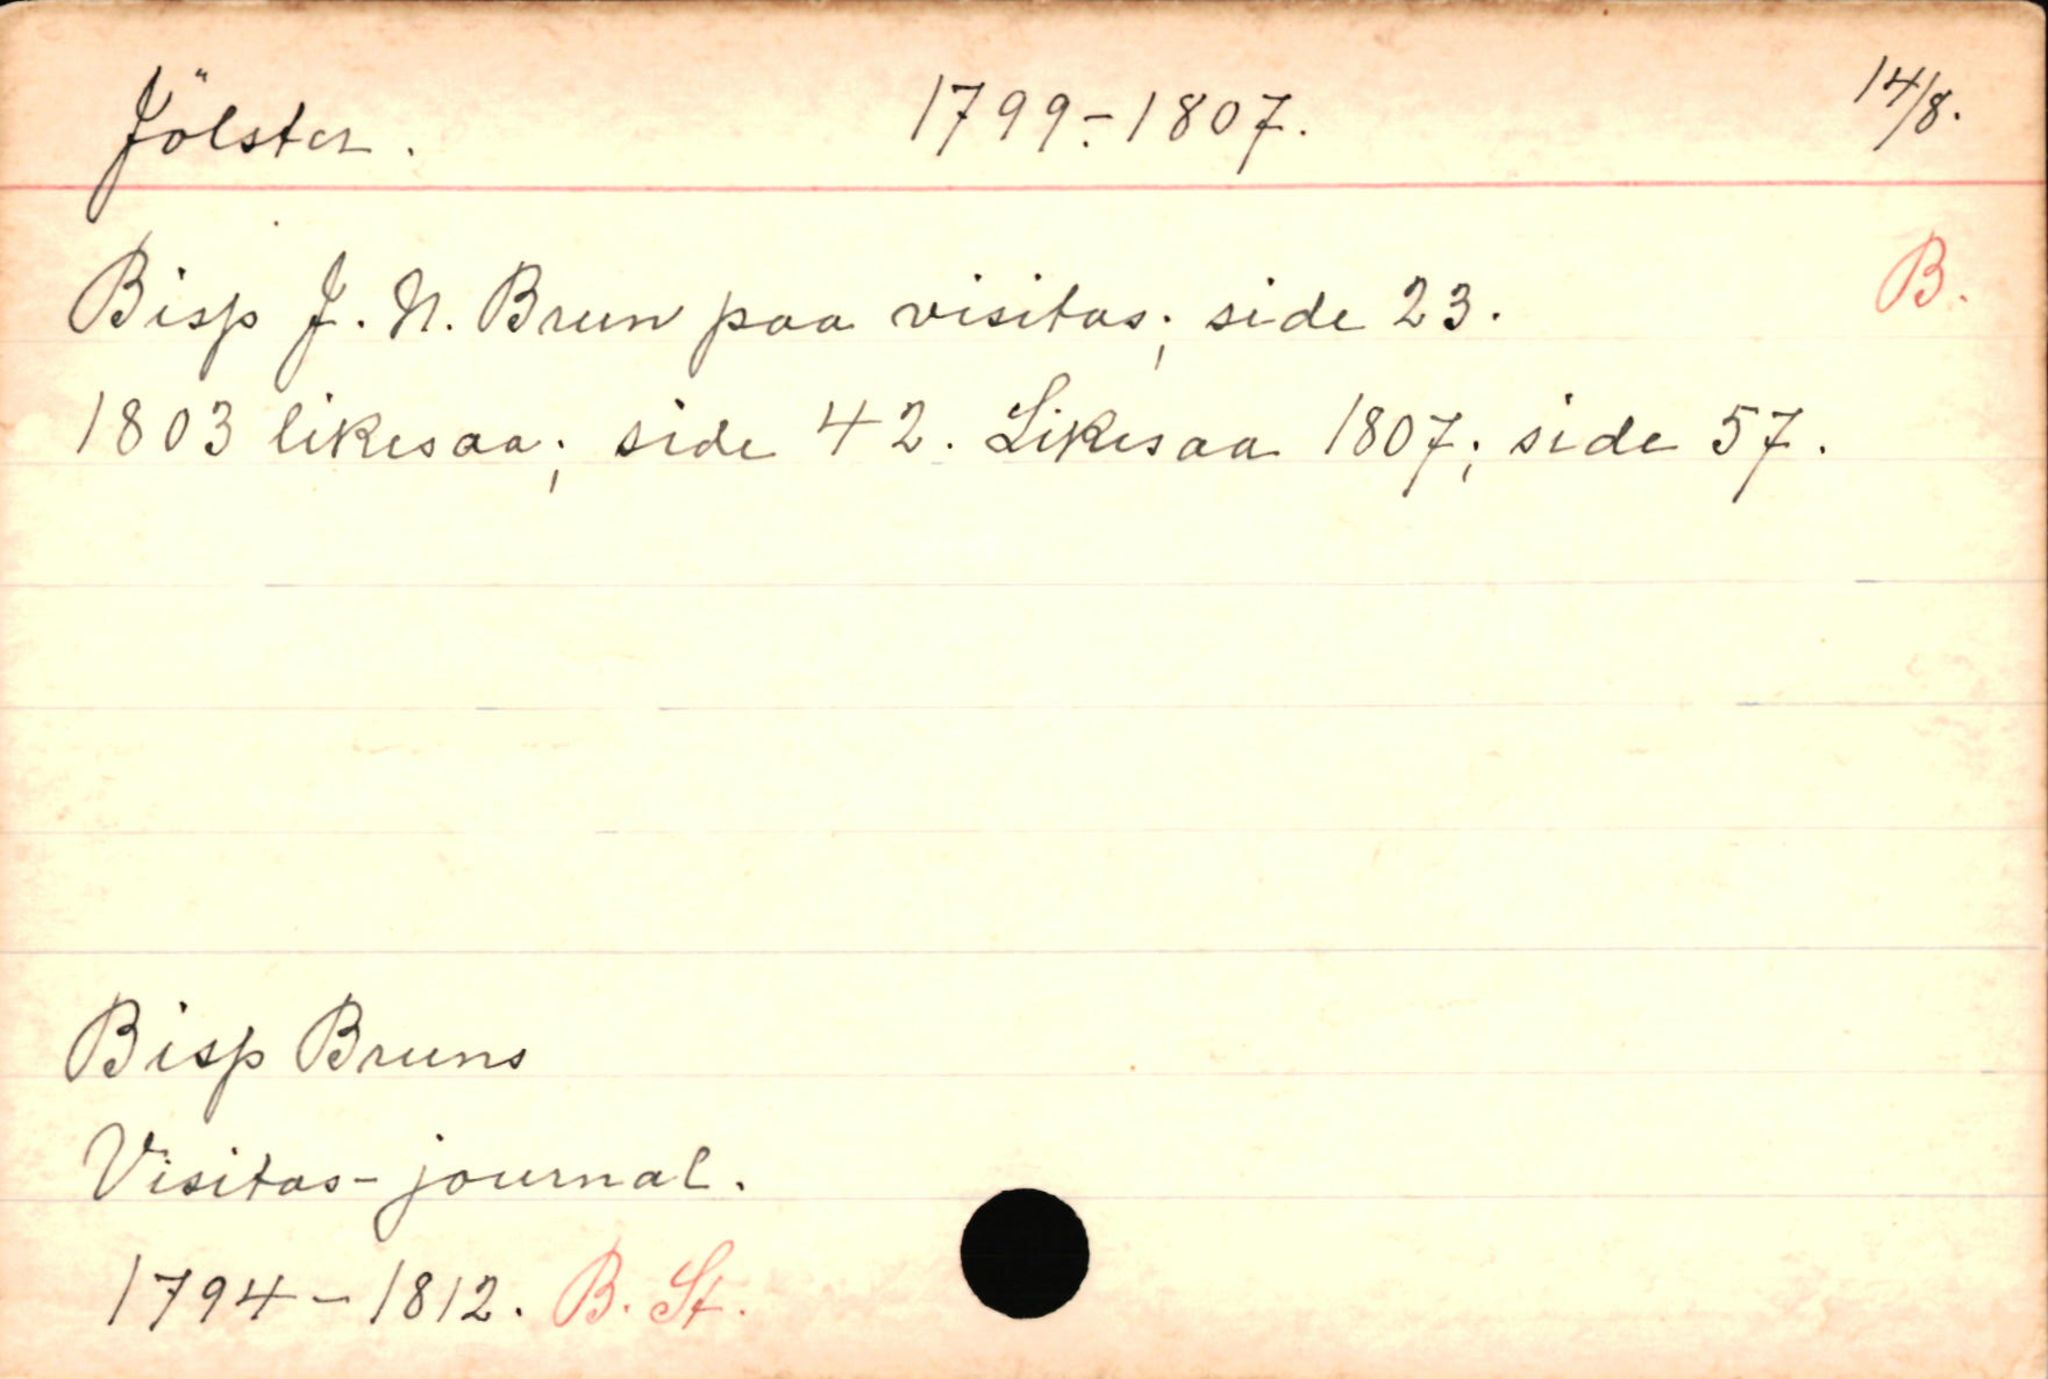 Jölster. 1799.-1807. 14/8.
Bisp J. N. Brun paa visitas; side 23. B.
1803 likesaa; side 42. Likesaa 1807; side 57.
Bisp Bruns
Visitas-journal.
1794-1812. B. St.